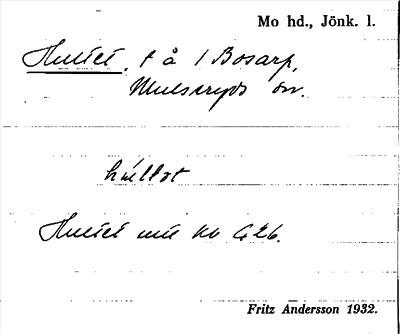 Mo hd., Jönk. l.
Hultet. t å 1 Bosarp,
Mulseryds sn.
húltɘt
Hultet mtr kb G26.
Fritz Andersson 1932.